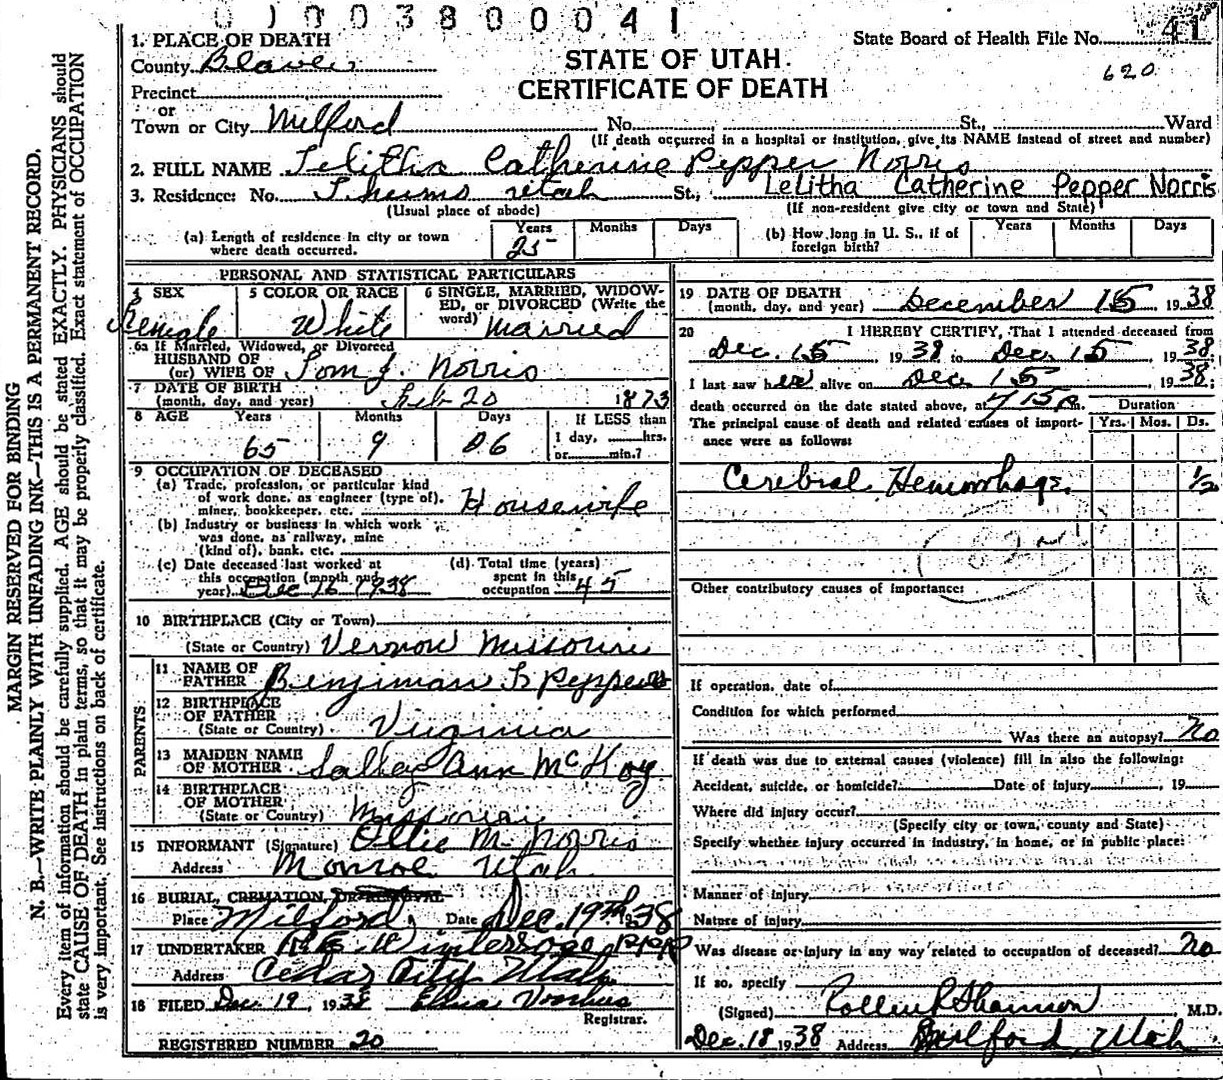 0 1 0 0 3 8 0 0 0 4 1
1. PLACE OF DEATH
County Beaver
Precinct
or
Town or City Milford
STATE OF UTAH
CERTIFICATE OF DEATH
State Board of Health File No. 41
620
No. St., Ward
(If death occurred in a hospital or institution, give its NAME instead of street and number)
2. FULL NAME Lelitha Catherine Pepper Norris
3. Residence: No. Utah St., Lelitha Catherine Pepper Norris
(Usual place of abode) (If non-resident give city or town and State)
(a) Length of residence in city or town where death occurred. Years 25 Months Days
(b) How long in U. S., if of foreign birth? Years Months Days
PERSONAL AND STATISTICAL PARTICULARS
SEX Female
5 COLOR OR RACE White
6 SINGLE, MARRIED, WIDOWED, or DIVORCED (Write the word) Married
6a If Married, Widowed, or Divorced
HUSBAND OF
(or) WIFE OF Tom J. Norris
7 DATE OF BIRTH
(month, day, and year) Feb 20 1873
8 AGE Years 65 Months 9 Days 26
If LESS than
1 day, hrs.
or min.?
9 OCCUPATION OF DECEASED
(a) Trade, profession, or particular kind
of work done, as engineer (type of),
miner, bookkeeper, etc. Housewife
(b) Industry or business in which work
was done, as railway, mine
(kind of), bank, etc.
(c) Date deceased last worked at
this occupation (month and
year) Dec 1938
(d) Total time (years)
spent in this
occupation 45
10 BIRTHPLACE (City or Town)
(State or Country) Vernon Missouri
PARENTS
11 NAME OF
FATHER Benjiman F Pepper
12 BIRTHPLACE
OF FATHER
(State or Country) Virginia
13 MAIDEN NAME
OF MOTHER Salley Ann McKoy
14 BIRTHPLACE
OF MOTHER
(State or Country) Missouri
15 INFORMANT (Signature) Ollie M. Norris
Address Monroe Utah
16 BURIAL, CREMATION, OR REMOVAL
Place Milford, Date Dec. 19th 1938
17 UNDERTAKER
Address Cedar City Utah
18 FILED Dec. 19, 1938
Registrar.
REGISTERED NUMBER 20
19 DATE OF DEATH
(month, day, and year) December 15 1938
20 I HEREBY CERTIFY, That I attended deceased from
Dec. 15 1938 to Dec. 15, 1938;
I last saw her alive on Dec 15, 1938;
death occurred on the date stated above, at 7 15 p m. Duration
The principal cause of death and related causes of importance were as follows: Yrs. Mos. Ds.
Cerebral Hemorrhage 1/2
Other contributory causes of importance:
If operation, date of
Condition for which performed
Was there an autopsy? No
If death was due to external causes (violence) fill in also the following:
Accident, suicide, or homicide? Date of injury , 19
Where did injury occur?
(Specify city or town, county and State)
Specify whether injury occurred in industry, in home, or in public place:
Manner of injury
Nature of injury
Was disease or injury in any way related to occupation of deceased? No
If so, specify
(Signed) M.D.
Dec. 18 1938 Address Milford, Utah
MARGIN RESERVED FOR BINDING
N. B.—WRITE PLAINLY WITH UNFADING INK—THIS IS A PERMANENT RECORD.
Every item of information should be carefully supplied. AGE should be stated EXACTLY. PHYSICIANS should
state CAUSE OF DEATH in plain terms, so that it may be properly classified. Exact statement of OCCUPATION
is very important. See instructions on back of certificate.